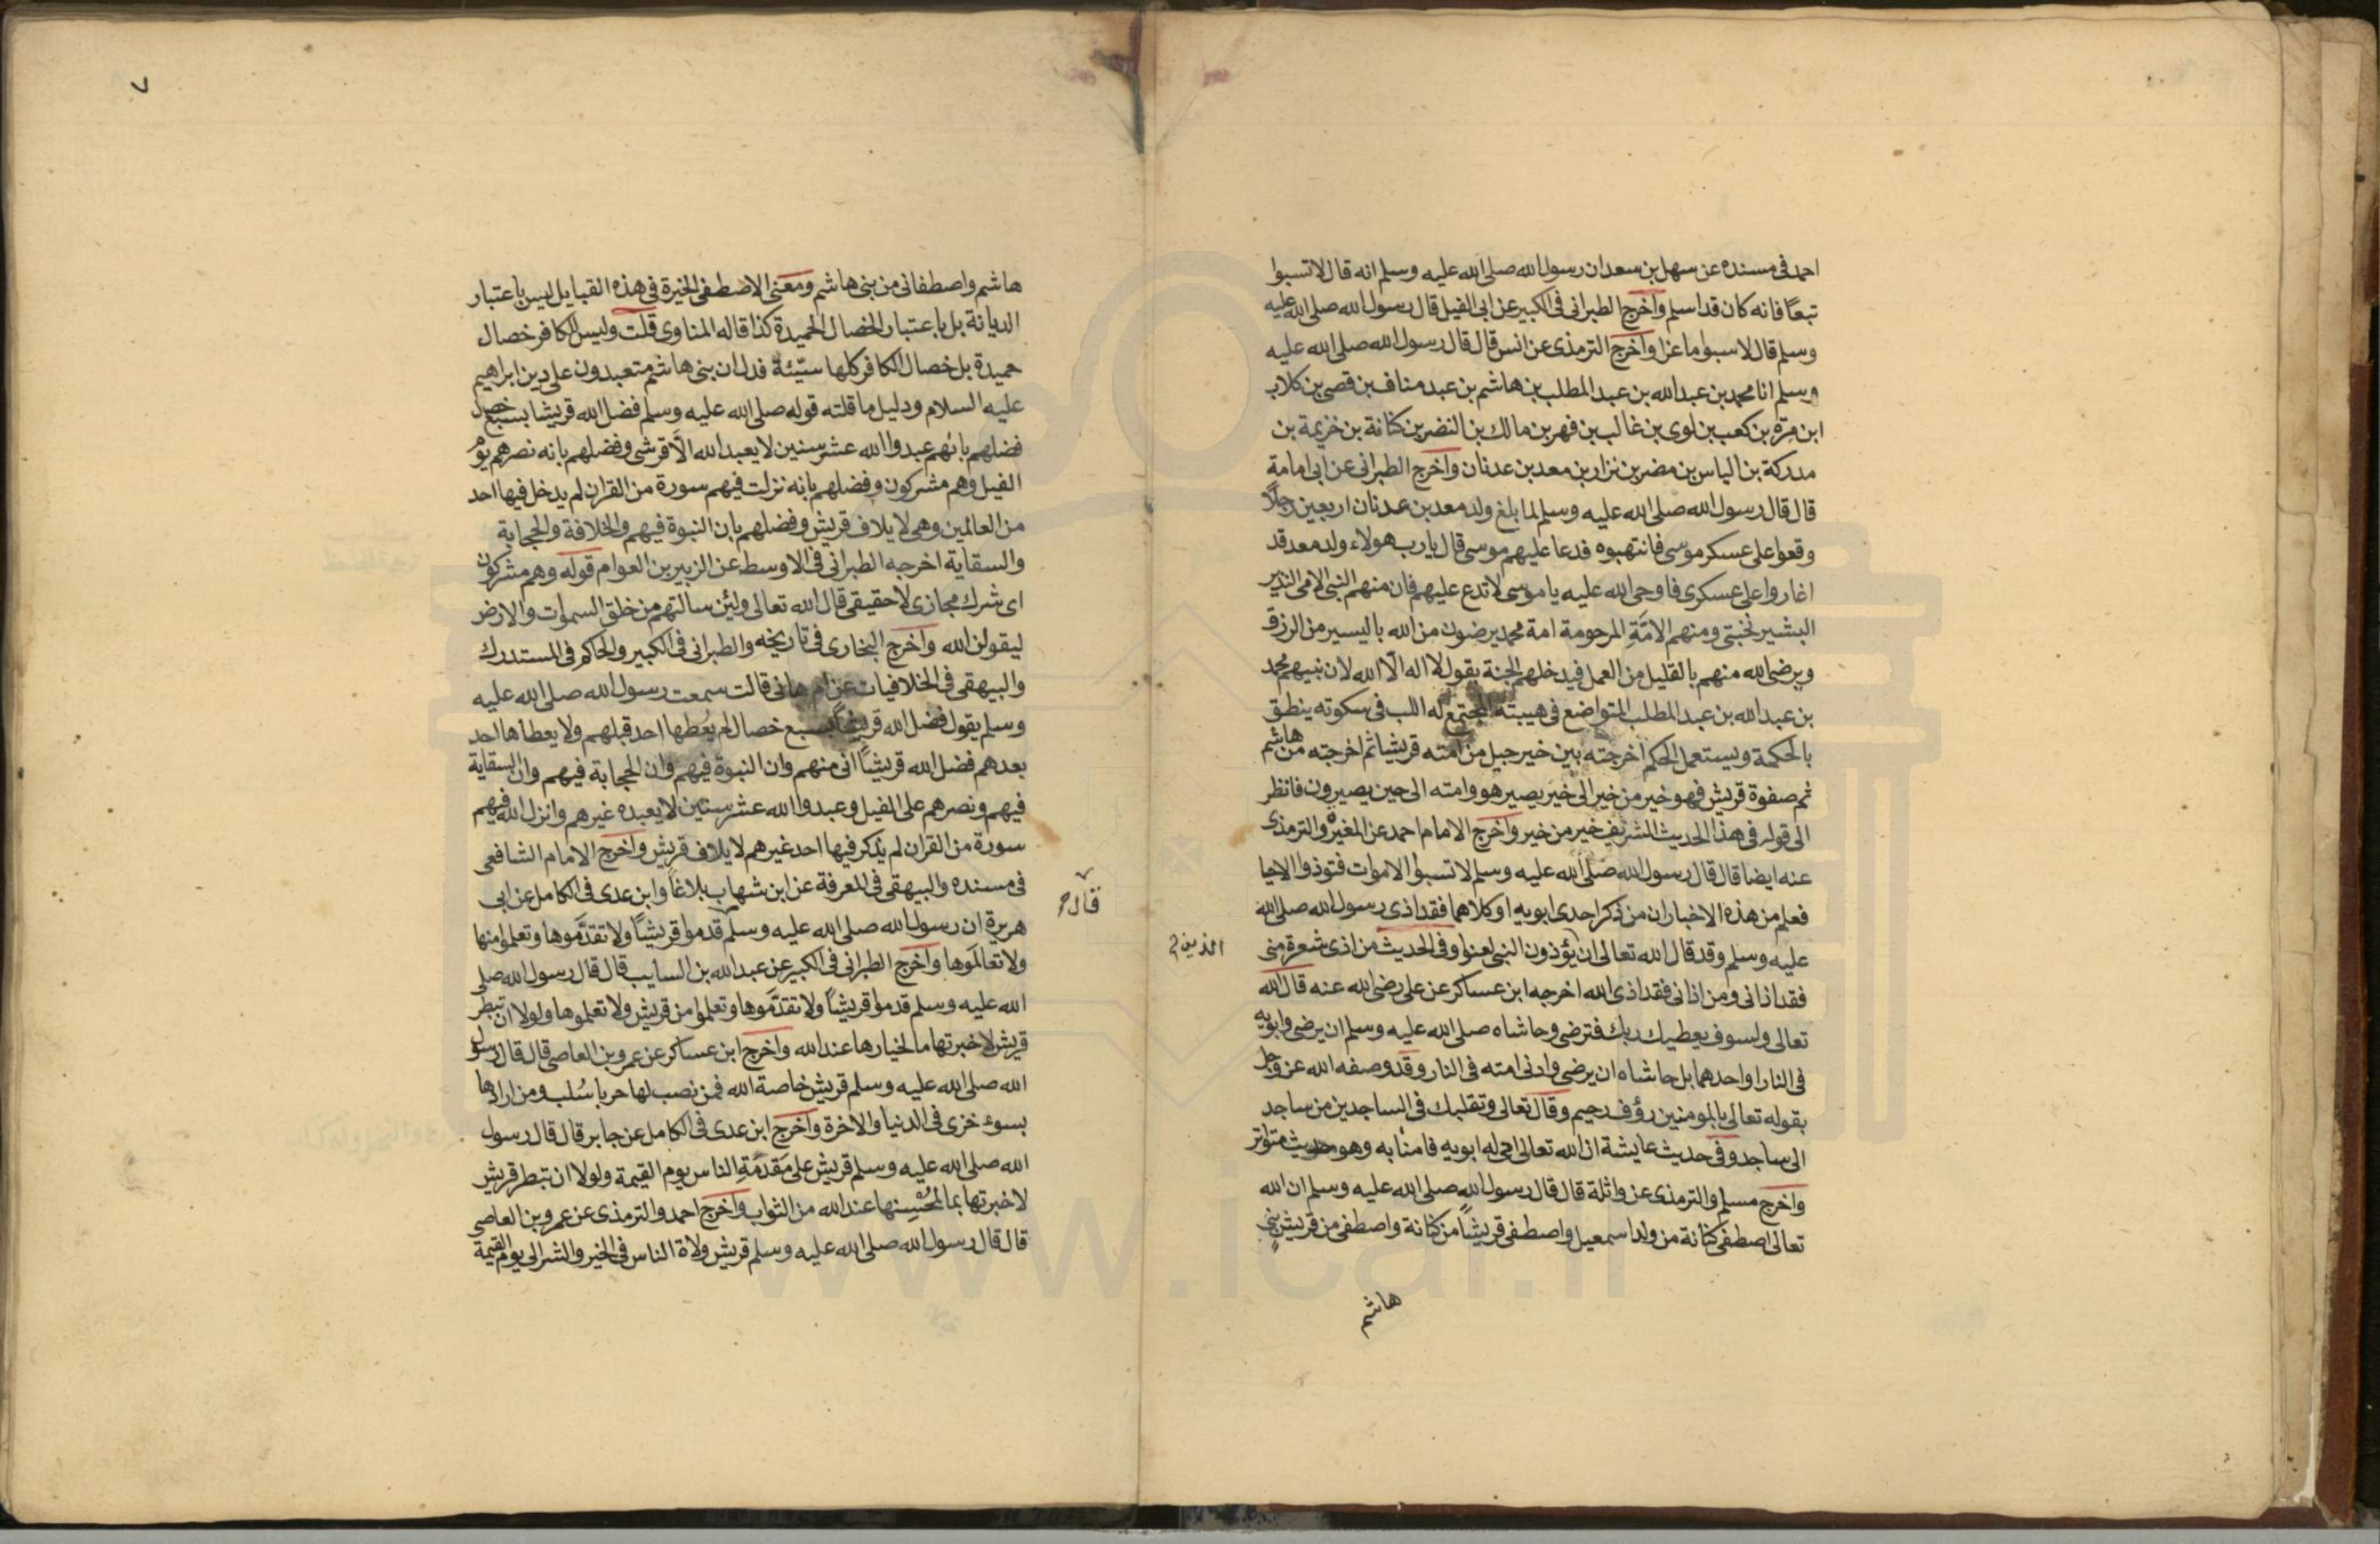 احمد في مسنده عن سهل بن سعد ان رسول الله صلى الله عليه وسلم انه قال لا تسبوا
تبعًا فانه كان قد اسلم واخرج الطبراني في الكبير عن ابي الفيل قال رسول الله صلى الله عليه
وسلم قال لا سبوا ماعزا واخرج الترمذى عن انس قال قال رسول الله صلى الله عليه
وسلم انا محمد بن عبدالله بن عبدالمطلب بن هاشم بن عبد مناف بن قصى بن كلاب
ابن مرة بن كعب بن لوى بن غالب بن فهر بن مالك بن النضر بن كنانة بن خزيمة بن
مدركة بن الياس بن مضر بن نزار بن معد بن عدنان واخرج الطبراني عن ابي امامة
قال قال رسول الله صلى الله عليه وسلم لما بلغ ولد معد بن عدنان اربعين رجلًا
وقعوا على عسكر موسى فانتهبوه فدعا عليهم موسى قال يارب هولاء ولد معد قد
اغاروا على عسكرى فاوحى الله عليه يا موسى لا تدع عليهم فان منهم النبي الامي النذير
البشير نجتبى ومنهم الامّة المرحومة امة محمد يرضون من الله باليسير من الرزق
ويرضى الله منهم بالقليل من العمل فيدخلهم الجنة بقول لا اله الّا الله لان نبيهم محمد
بن عبدالله بن عبدالمطلب المتواضع في هيبته المجتمع له اللب في سكوته ينطق
بالحكمة ويستعمل الحكم اخرجته بين خير جيل من امته قريشا ثم اخرجته من هاشم
ثم صفوة قريش فهو خير من خير الى خير يصير هو وامته الى حين يصيرون فانظر
الى قوله في هذا الحديث الشريف خير من خير واخرج الامام احمد عن المغيرة والترمذى
عنه ايضا قال قال رسول الله صلى الله عليه وسلم لا تسبوا الاموات فتوذوا الاحيا
فعلم من هذه الاخبار ان من ذكر احدى ابويه او كلاهما فقد اذى رسول الله صلى الله
عليه وسلم وقد قال الله تعالى ان يؤذون النبي لعنوا وفي الحديث من اذى شعرة منى
الذين
فقد اذانى ومن اذانى فقد اذى الله اخرجه ابن عساكر عن على رضى الله عنه قال الله
تعالى ولسوف يعطيك ربك فترضى وحاشاه صلى الله عليه وسلم ان يرضى وابويه
في النار او احدهما بل حاشاه ان يرضى وادنى امته في النار وقد وصفه الله عز وجل
بقوله تعالى بالمومنين رؤف رحيم وقال تعالى وتقلبك في الساجدين من ساجد
الى ساجد وفي حديث عايشة ان الله تعالى احى له ابويه فامنا به وهو حديث متواتر
واخرج مسلم والترمذى عن واثلة قال قال رسول الله صلى الله عليه وسلم ان الله
تعالى اصطفى كنانة من ولد اسمعيل واصطفى قريشًا من كنانة واصطفى من قريش بنى
هاشم
٧
هاشم واصطفانى من بنى هاشم ومعنى الاصطفى الخيرة في هذه القبايل ليس باعتبار
الديانة بل باعتبار الخصال الحميدة كذا قاله المناوى قلت وليس للكافر خصال
حميدة بل خصال الكافر كلها سيّئة فدل ان بنى هاشم متعبدون على دين ابراهيم
عليه السلام ودليل ما قلته قوله صلى الله عليه وسلم فضل الله قريشا بسبع خصال
فضلهم بانهم عبدوا الله عشر سنين لا يعبد الله الّا قرشى وفضلهم بانه نصرهم يوم
الفيل وهم مشركون وفضلهم بانه نزلت فيهم سورة من القران لم يدخل فيها احد
من العالمين وهى لايلاف قريش وفضلهم بان النبوة فيهم والخلافة والحجابة
والسقاية اخرجه الطبرانى في الاوسط عن الزبير بن العوام قوله وهم مشركون
اى شرك مجازى لا حقيقى قال الله تعالى ولئن سالتهم من خلق السموات والارض
ليقولن الله واخرج البخارى في تاريخه والطبرانى في الكبير والحاكم في المستدرك
والبيهقى في الخلافيات عن ام هانى قالت سمعت رسول الله صلى الله عليه
وسلم يقول فضل الله قريشًا بسبع خصال لم يُعطها احد قبلهم ولا يعطاها احد
بعدهم فضل الله قريشًا انى منهم وان النبوة فيهم وان الحجابة فيهم وان السقاية
فيهم ونصرهم على الفيل وعبدوا الله عشر سنين لا يعبده غيرهم وانزل الله فيهم
سورة من القران لم يُذكر فيها احد غيرهم لايلاف قريش واخرج الامام الشافعى
في مسنده والبيهقى في المعرفة عن ابن شهاب بلاغًا وابن عدى في الكامل عن ابى
قال
هريرة ان رسول الله صلى الله عليه وسلم قدموا قريشًا ولا تقدَّموها وتعلموا منها
ولا تعالَموها واخرج الطبرانى في الكبير عن عبدالله بن السايب قال قال رسول الله صلى
الله عليه وسلم قدموا قريشًا ولا تقدَّموها وتعلموا من قريش ولا تعلموها ولولا ان تبطر
قريش لاخبرتها ما لخيارها عند الله واخرج ابن عساكر عن عمرو بن العاصى قال قال رسول
الله صلى الله عليه وسلم قريش خاصة الله فمن نصب لها حربا سُلب ومن ارادها
بسوء خزى في الدنيا والاخرة واخرج ابن عدى في الكامل عن جابر قال قال رسول
الله صلى الله عليه وسلم قريش على مَقدمَةِ الناس يوم القيمة ولولا ان تبطر قريش
لاخبرتها بما لمُحسِنها عند الله من الثواب واخرج احمد والترمذى عن عمرو بن العاصى
قال قال رسول الله صلى الله عليه وسلم قريش ولاة الناس في الخير والشر الى يوم القيمة
www.ical.ir